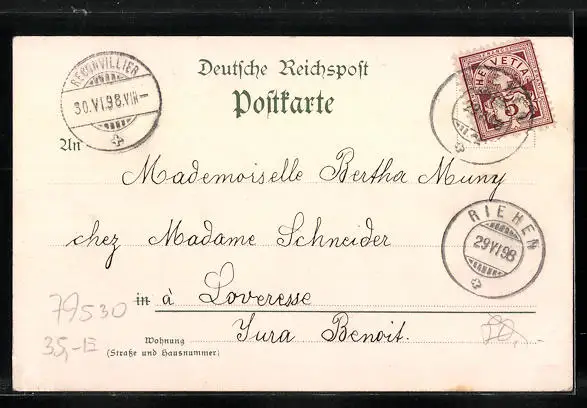 Deutsche Reichspost
Postkarte
RECONVILLIER
30.VI.98.VIII–
HELVETIA
FRANCO
5
An Mademoiselle Bertha Muny
chez Madame Schneider
RIEHEN
29 VI 98
in à Loveresse
Jura Benoit.
Wohnung
(Straße und Hausnummer)
79530
35,-E